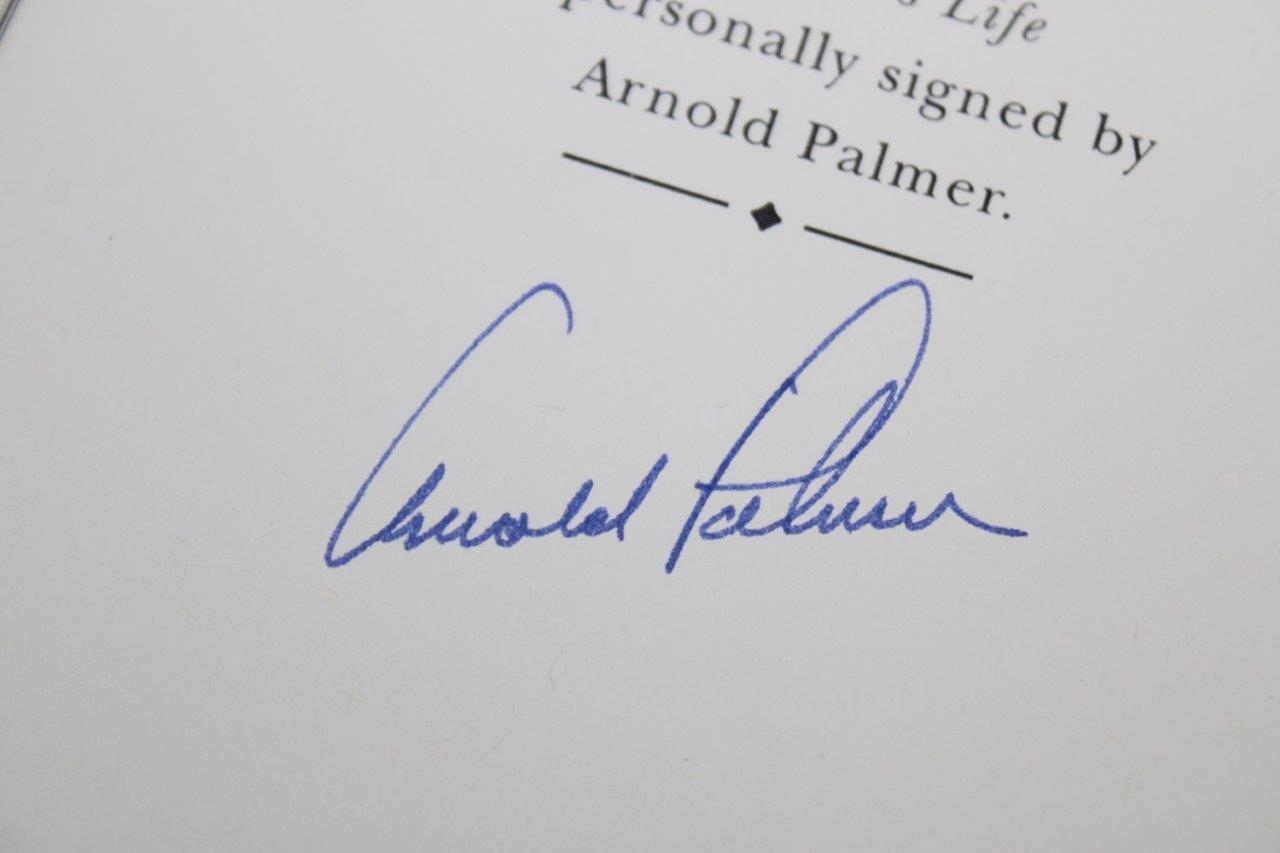 's Life
personally signed by
Arnold Palmer.
Arnold Palmer